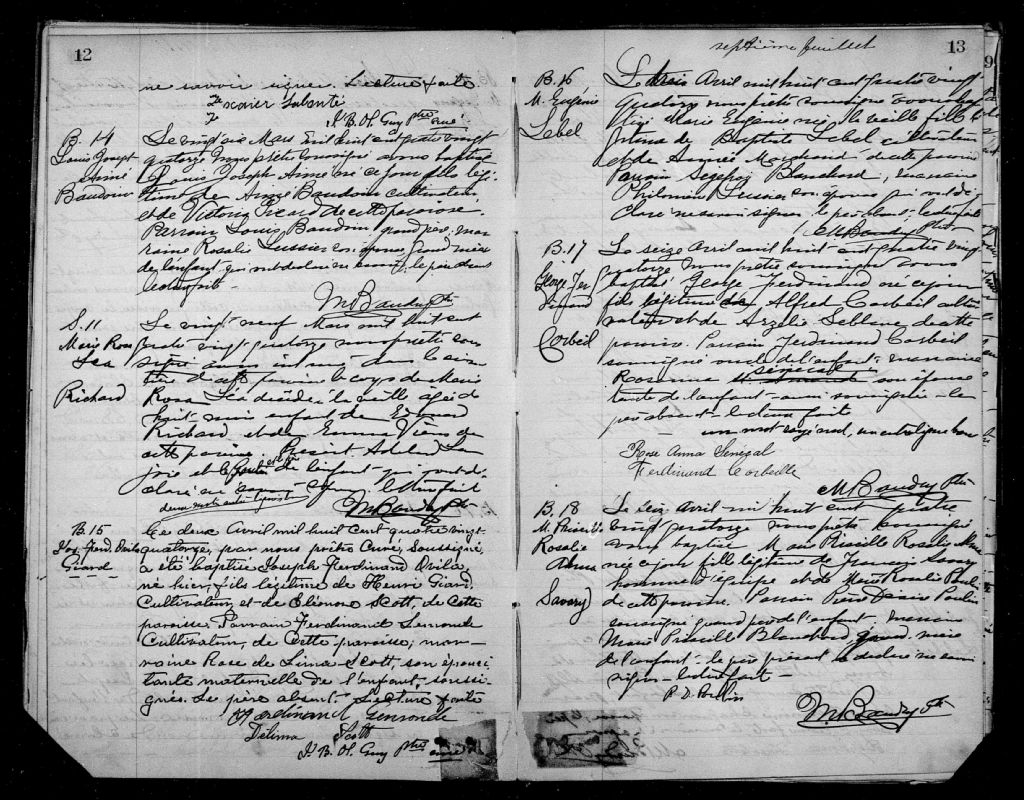 12
ne savoir signer. Lecture faite
Xavier Labonté
J. B. O. Guy Ptre curé
B. 14
Louis Joseph
Aimé
Baudoin
Le vingt six Mars mil huit cent quatre vingt
quatorze nous prêtre soussigné avons baptisé
Louis Joseph Aimé né ce jour fils légi-
time de Aimé Baudoin cultivateur
et de Victoria Picard de cette paroisse.
Parrain Louis Baudoin grand père; mar-
raine Rosalie Lussier son épouse grand mère
de l'enfant qui ont déclaré ne savoir le père
Lecture faite
M Baudry Ptr
S. 11
Marie Rosa
Léa
Richard
Le vingt neuf Mars mil huit cent
quatre vingt quatorze nous prêtre sous
signé avons inhumé dans le cime-
tière de cette paroisse le corps de Marie
Rosa Léa décédée la veille agée de
huit mois enfant de Edmond
Richard et de Emma Viens de
cette paroisse. Présent
et le de l'enfant qui ont dé-
claré ne savoir signer. Lecture faite
M Baudry Ptr
B. 15
Jos. Ferd. Ovila
Giard
Ce deux Avril mil huit cent quatre vingt
quatorze, par nous prêtre Curé, soussigné,
a été baptisé Joseph Ferdinand Ovila,
né hier, fils légitime de Henri Giard,
Cultivateur, et de Eléonore Scott, de cette
paroisse. Parrain Ferdinand Senronde
Cultivateur, de Cette paroisse; mar-
raine Rose de Lima Scott, son épouse
tante maternelle de l'enfant, soussi-
gnés. Le père absent. Lecture faite
Ferdinand Gensonde
Délima Scott
J. B. O. Guy Ptre curé
septième feuillet
13
B. 16
M. Eugénie
Lebel
Le trois Avril mil huit cent quatre vingt
quatorze nous prêtre soussigné avons
Marie Eugénie née la veille fille lé-
gitime de Baptiste Lebel cultivateur
et de Aimée Marchand de cette paroisse
Parrain Blanchard, marraine
Philomène Lussier son épouse qui ont dé-
claré ne savoir signer. le père absent. lecture faite
M Baudry Ptr
B. 17
George Fer
dinand
Corbeil
Le seize Avril mil huit cent quatre vingt
quatorze nous prêtre soussigné avons
baptisé George ferdinand né ce jour
fils légitime de Alfred Corbeil culti-
vateur et de Azélie Leblanc de cette
paroisse. Parrain Ferdinand Corbeil
soussigné oncle de l'enfant, marraine
Rosanna sénécal son épouse
tante de l'enfant aussi soussignée - le
père absent - lecture faite
un mot rayé nul,
Rose Anna Sénégal
Ferdinand Corbeille
M Baudry Ptr
B. 18
Rosalie
Anna
Savary
Le seize Avril mil huit cent quatre
vingt quatorze nous prêtre soussigné
avons baptisé Marie Priscille Rosalie Anna
née ce jour fille légitime de François Savary
homme d'équipe et de Marie Rosalie Paulin
de cette paroisse. Parrain Pierre Paulin
soussigné grand père de l'enfant. marraine
Marie Priscille Blanchard grand mère
de l'enfant - le père présent a déclaré ne savoir
signer - lecture faite -
P. D. Paulin
M Baudry Ptr